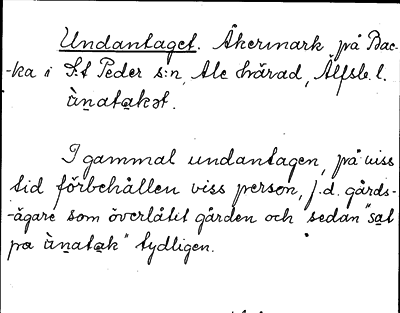 Undantaget. Åkermark på Bac-
-ka i S:t Peder s:n, Ale härad, Älfsb. l.
ànatakət.
I gammal undantagen, på viss
tid förbehållen viss person, f.d. gårds-
-ägare som överlåtit gården och sedan "sat
pa ànatak" tydligen.